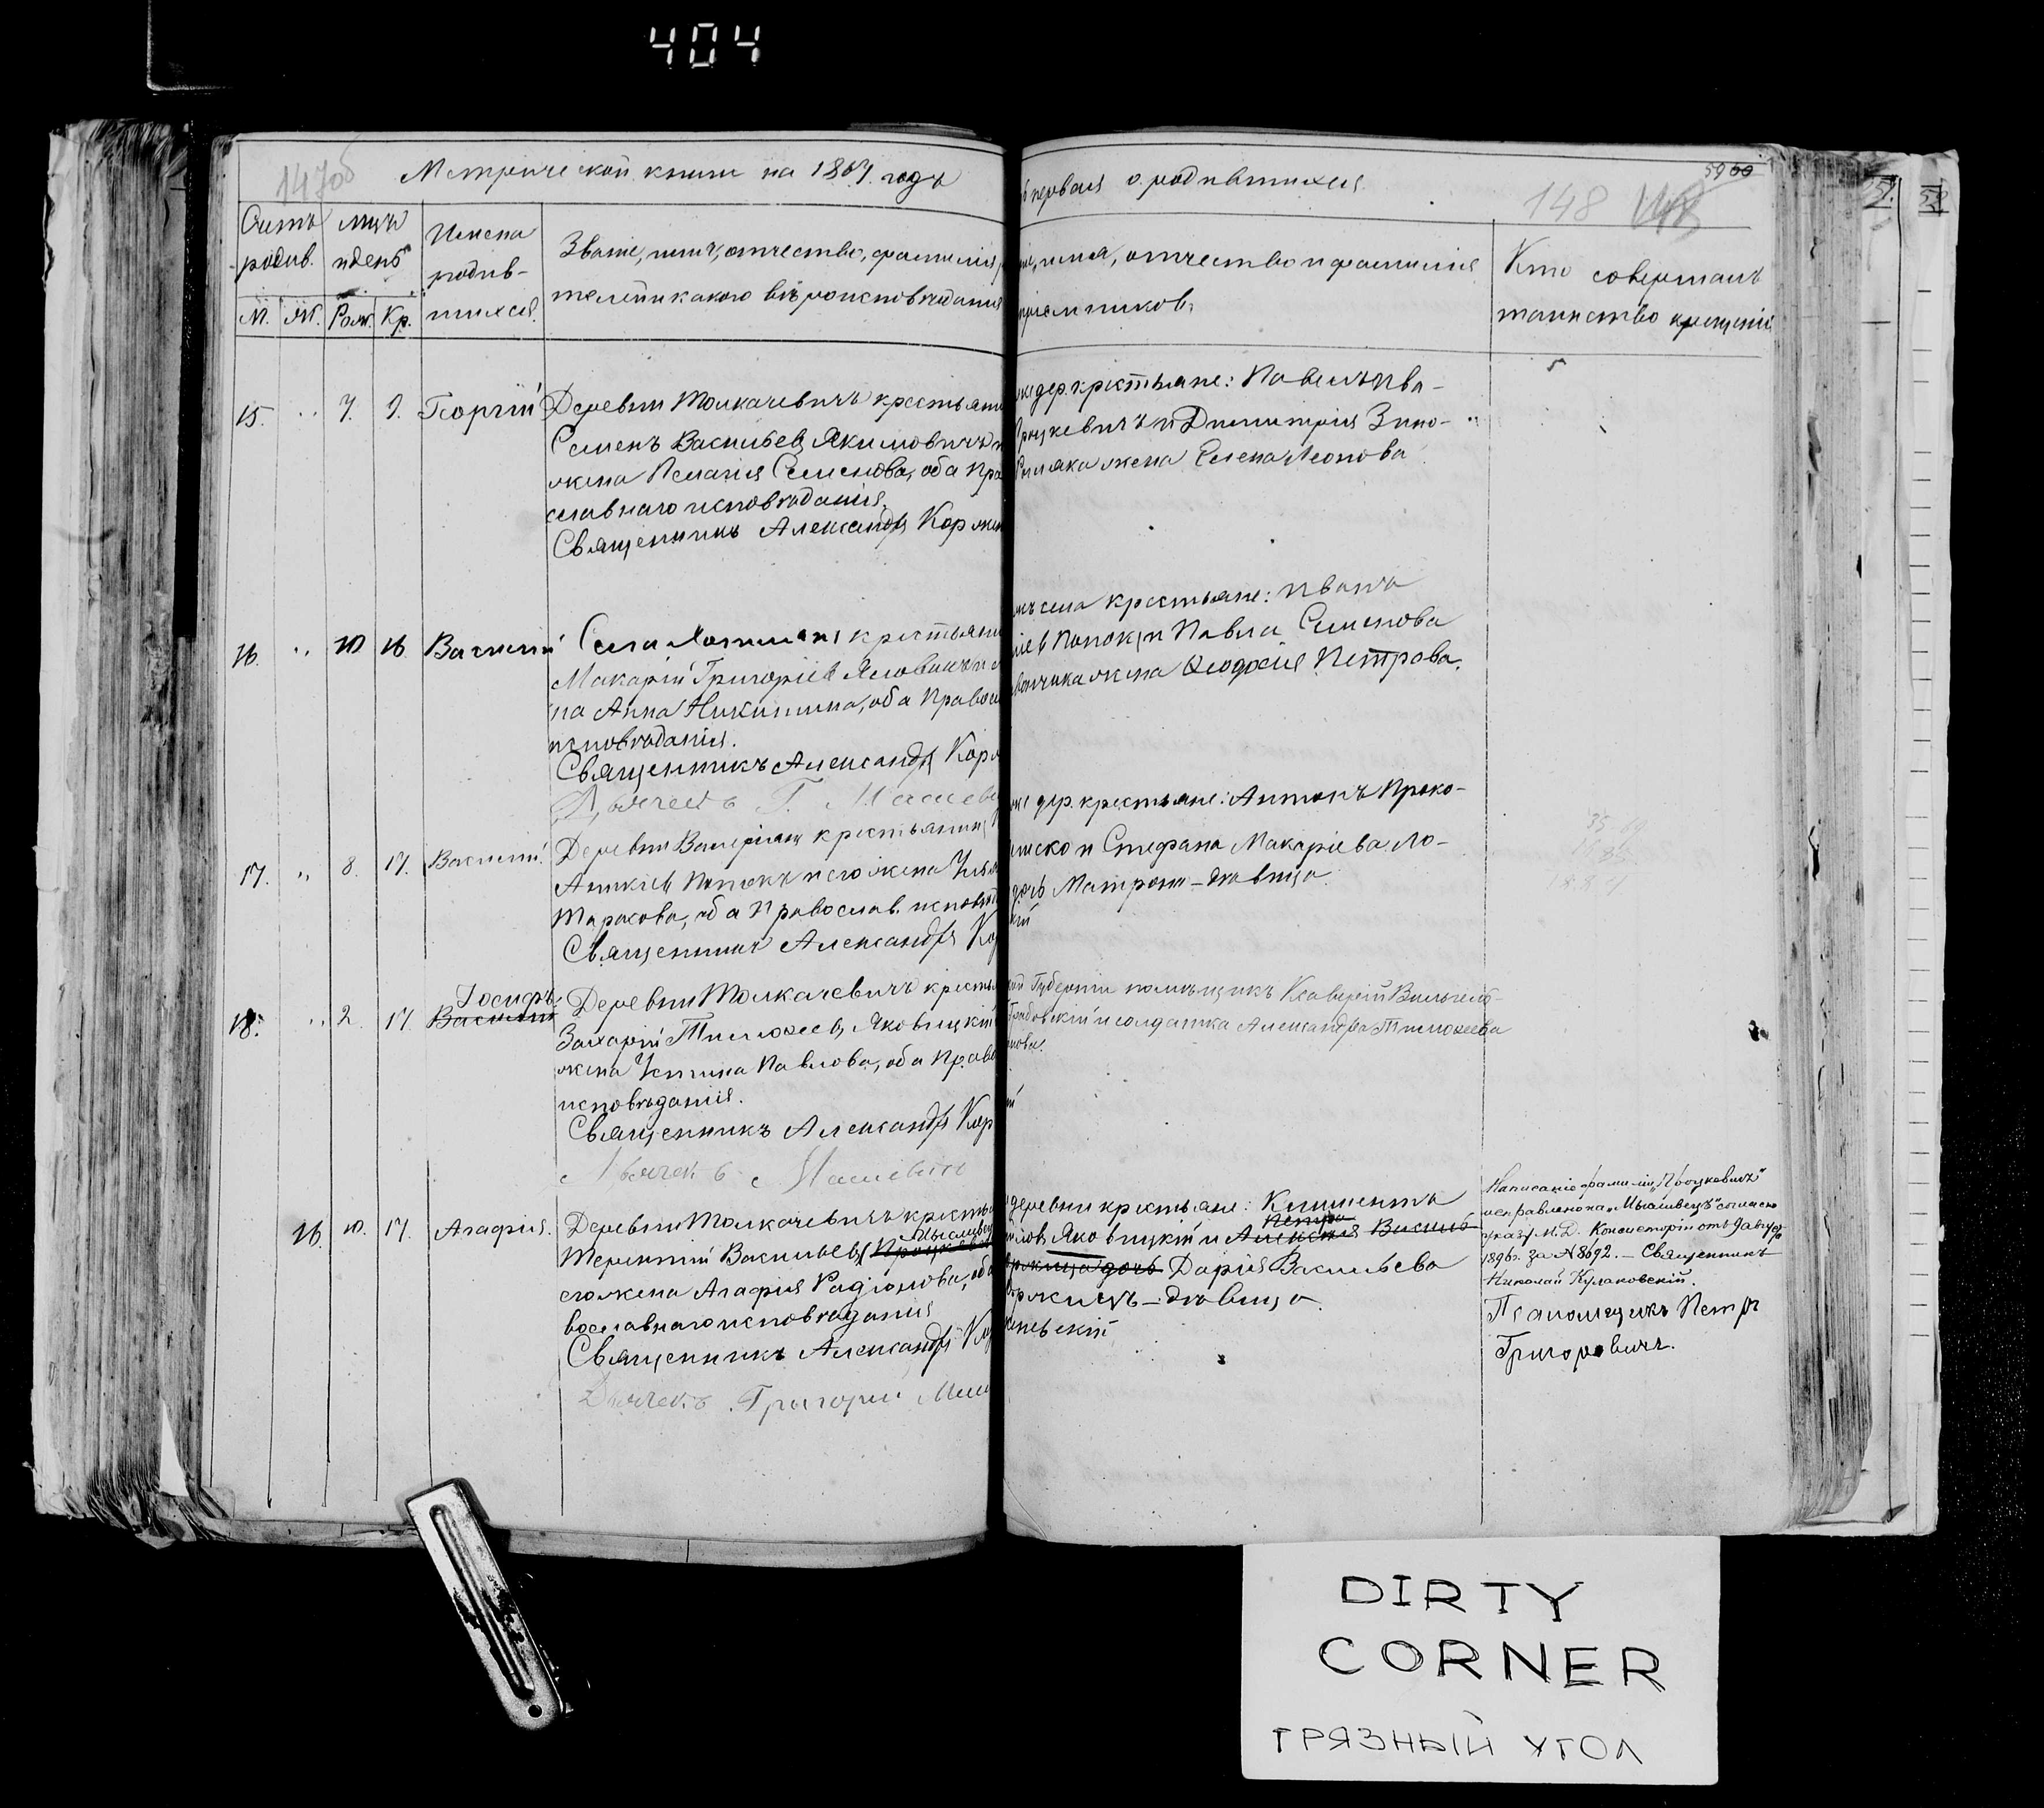 404
147об
Метрической книги на 1867. годъ
Счетъ родив.
М. Ж.
мцъ и день
Рож. Кр.
Имена родив-
шихся.
Званіе, имя, отчество, фамилія,
какого вѣроисповѣданія
15. " 7. 9. Георгій
Деревни Толкачевичъ крестьяни
Семенъ Васильевъ Якимовичъ и
жена Пелагія Семенова, оба пра
славнаго исповѣданія.
Священникъ Александръ Коржен
16. " 10 16 Василій
Села крестьяни
Макарій Григоріевъ Яловикъ и
на Анна Никитина, оба Правосл
исповѣданія.
Священникъ Александръ Корж
Дьячекъ Г.
17. " 8. 17. Василій.
Деревни крестьянинъ
Аникіевъ Попокъ и его жена Улья
Тарасова, оба Православ. исповѣд
Священникъ Александръ Кор
18. " 2. 17. Іосифъ
Василій
Деревни Толкачевичъ крестья
Захарій Тимоѳеевъ Яковицкій
жена Устина Павлова, оба Право
исповѣданія.
Священникъ Александръ Кор
Дьячекъ
16. 10. 17. Агафія.
Деревни Толкачевичъ кресть
Мышливец
Терентій Васильевъ Процкевич
его жена Агафія Радіонова, оба
вославнаго исповѣданія
Священникъ Александръ Кор
Дьячекъ Григорій
первая о родившихся.
5960
148 148
имя, отчество и фамилія
пріемниковъ
Кто совершалъ
таинство крещенія
же дер. крестьяне: Павелъ Ива-
Процкевичъ и Димитрія Зино-
жена Елена Леонова
села крестьяне: Иванъ
Попокъ и Павла Семенова
жена Ѳеодосія Петрова.
же дер. крестьяне: Антонъ Проко-
и Стефана Макаріева Ло-
дочь Матрона – дѣвица.
кій
Губерніи помѣщикъ Ксаверій Вильгель-
и солдатка Александра Тимоѳеева
нова.
й
деревни крестьяне: Климентъ
Петра
Яковицкій и Алексѣя Василь
дочь Дарія Васильева
– дѣвица.
женевскій
Написаніе фамиліи „Процкевичъ"
исправлено на „Мышливецъ" согласно
указу М. Д. Консисторіи отъ
1896г. за № 8692. – Священникъ
Николай Кулаковскій.
Псаломщикъ Петръ
Григоровичъ.
DIRTY
CORNER
ГРЯЗНЫЙ УГОЛ